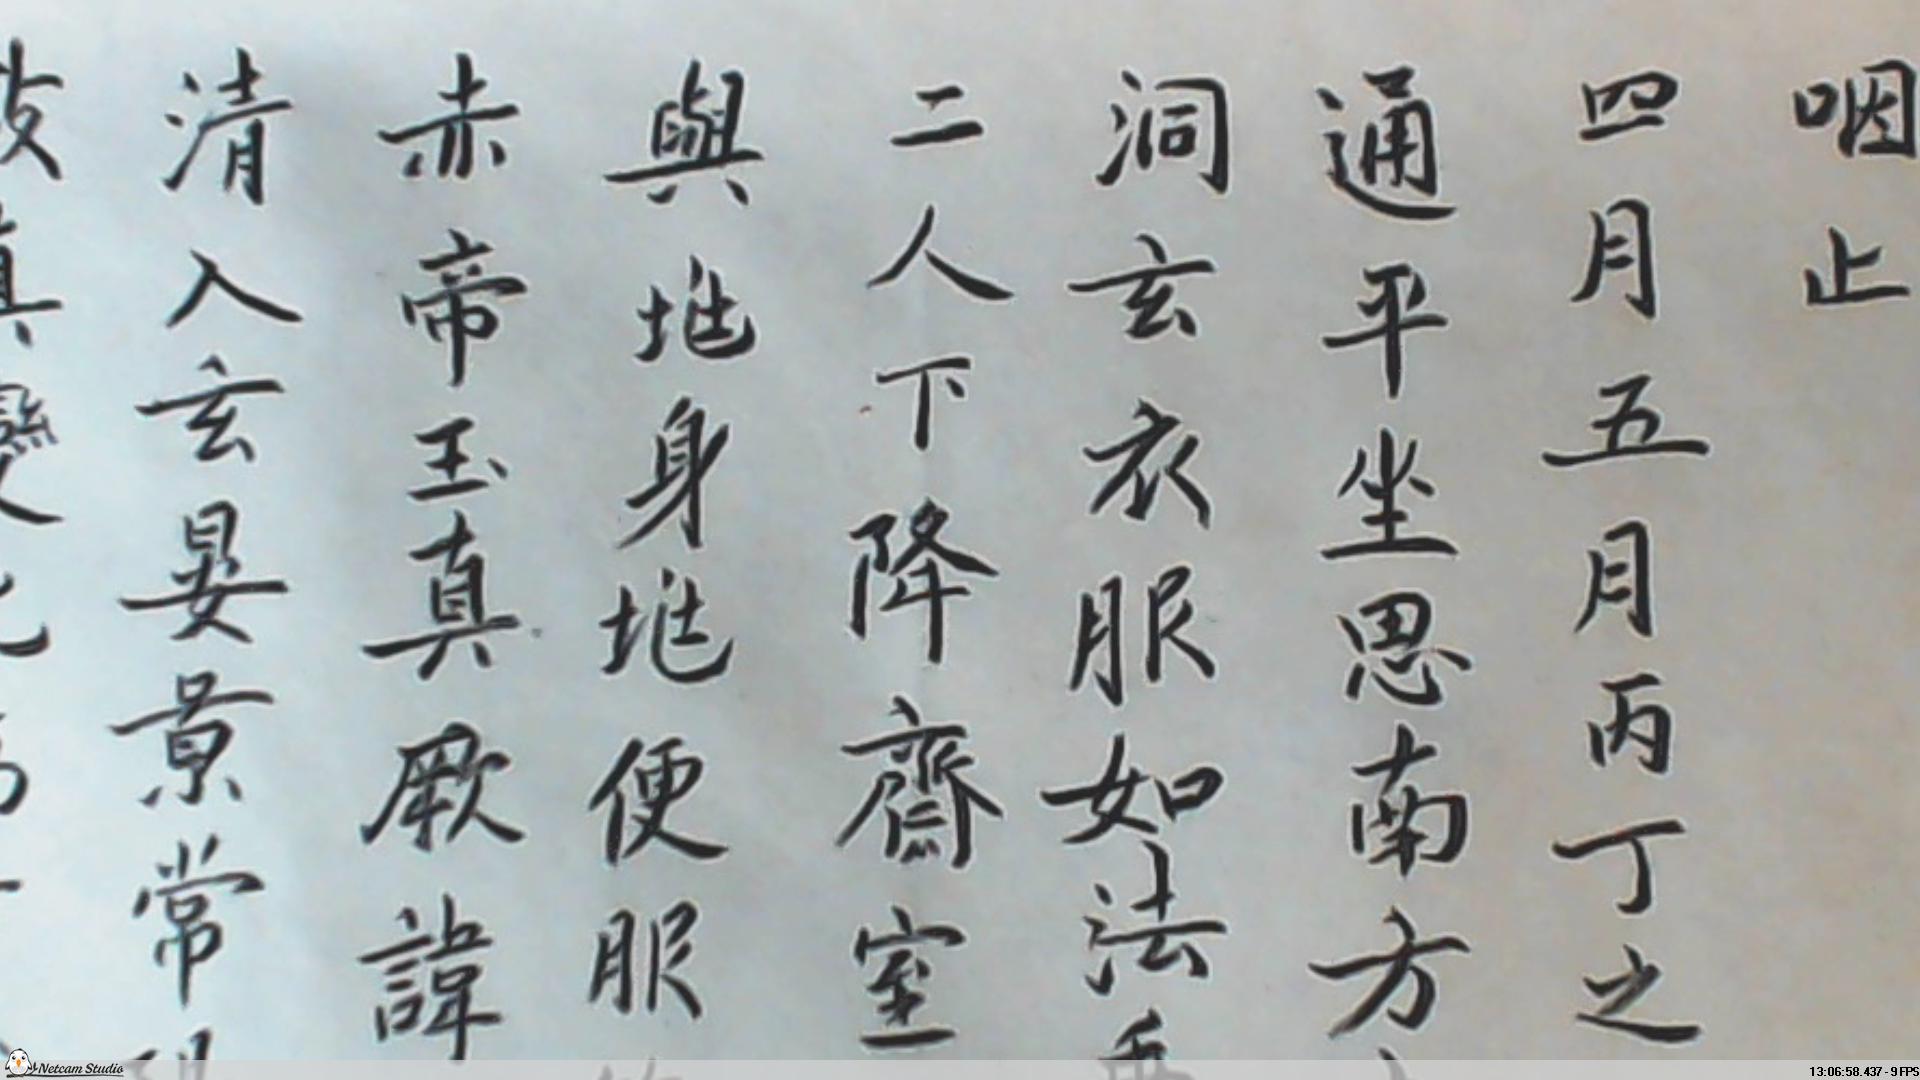 咽止
四月五月丙丁之
通平坐思南方
洞玄衣服如法
二人下降齋室
與地身地便服
赤帝玉真厥諱
清入玄晏景常
真變化
Netcam Studio
13:06:58.437 - 9 FPS